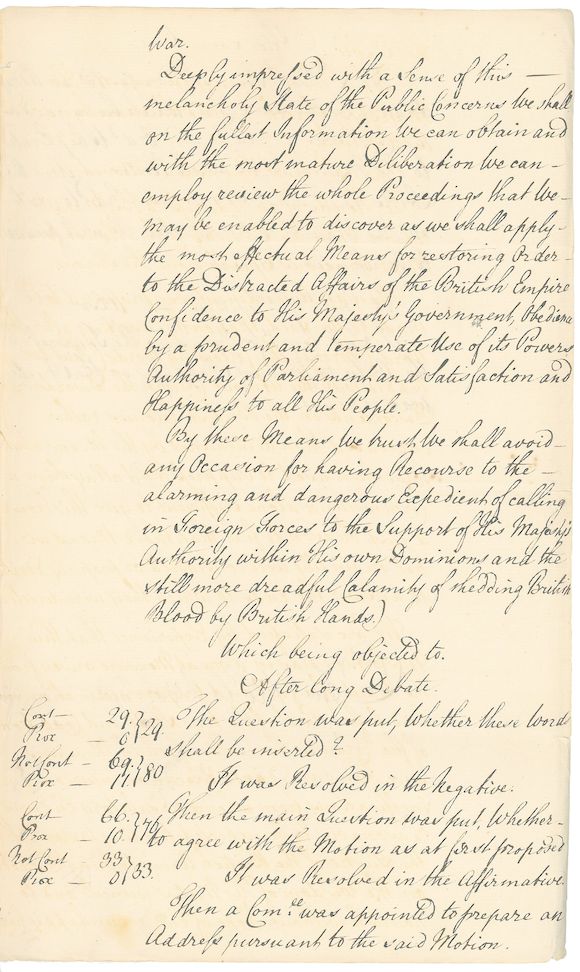 War.
Deeply impressed with a Sense of this —
melancholy State of the Public Concerns We shall
on the fullest Information We can obtain and
with the most mature Deliberation We can –
employ review the whole Proceedings that We –
may be enabled to discover as we shall apply –
the most effectual Means for restoring Order –
to the Distracted Affairs of the British Empire
Confidence to His Majesty's Government, Obedience
by a prudent and temperate Use of its Powers
Authority of Parliament and Satisfaction and
Happiness to all His People.
By these Means We trust We shall avoid –
any Occasion for having Recourse to the –
alarming and dangerous Expedient of calling
in Foreign Forces to the Support of His Majesty's
Authority within His own Dominions and the
still more dreadful Calamity of shedding British
Blood by British Hands.)
Which being objected to.
After long Debate.
Cont — 29. } 29. The Question was put, Whether these Words
Prox — 0
shall be inserted?
Not Cont — 69. } 80
Prox — 11 It was Resolved in the Negative.
Cont 66. } 76 Then the main Question was put, Whether –
Prox — 10. to agree with the Motion as at first proposed
Not Cont — 33 } 33.
Prox — 0 It was Resolved in the Affirmative.
Then a Com.ee was appointed to prepare an
Address pursuant to the said Motion.